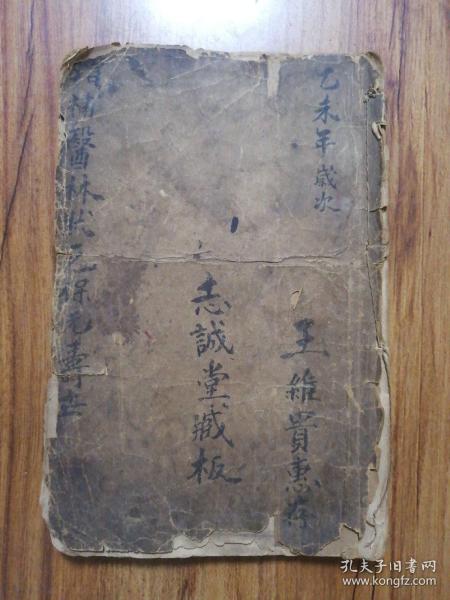 乙未年歲次
王維貴惠存
志誠堂藏板
補醫林狀元保元壽世
孔夫子旧书网
www.kongfz.com